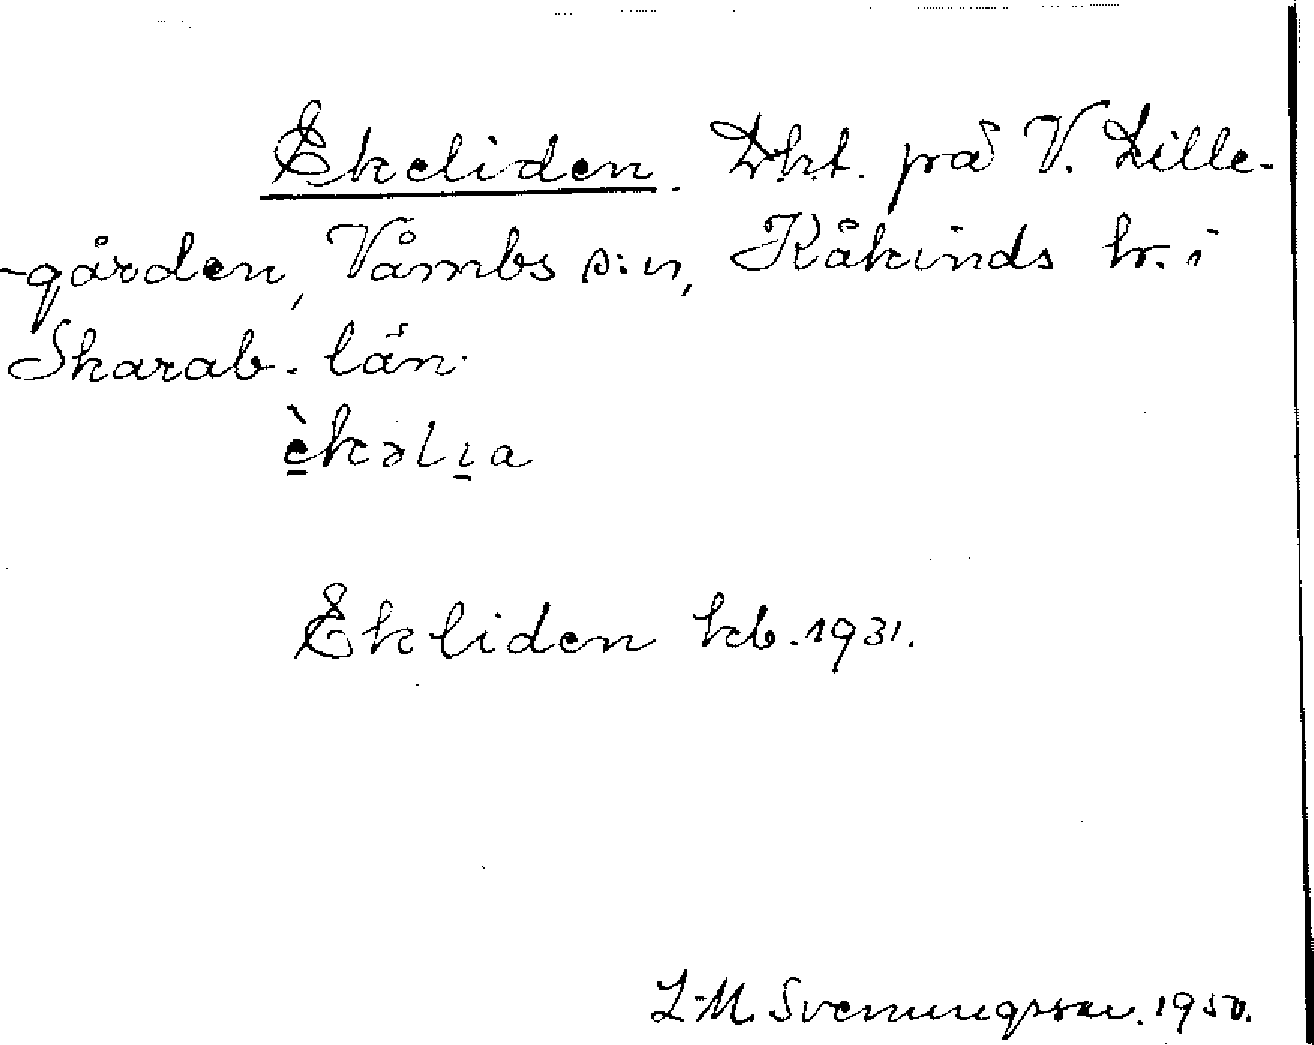 Ekeliden. Dkt. på V. Lille-
-gården, Våmbs s:n, Kåkinds hr. i
Skarab. län.
èkəlıa
Ekliden kb. 1931.
L-M. Svenungsson. 1950.